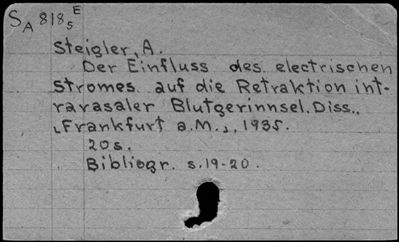 S_A 818_5^E
Steigler, A.
Der Einfluss des electrischen
Stromes auf die Retraktion int-
rarasaler Blutgerinnsel. Diss.,
[Frankfurt a.M.], 1935.
20s.
Bibliogr. s.19-20.